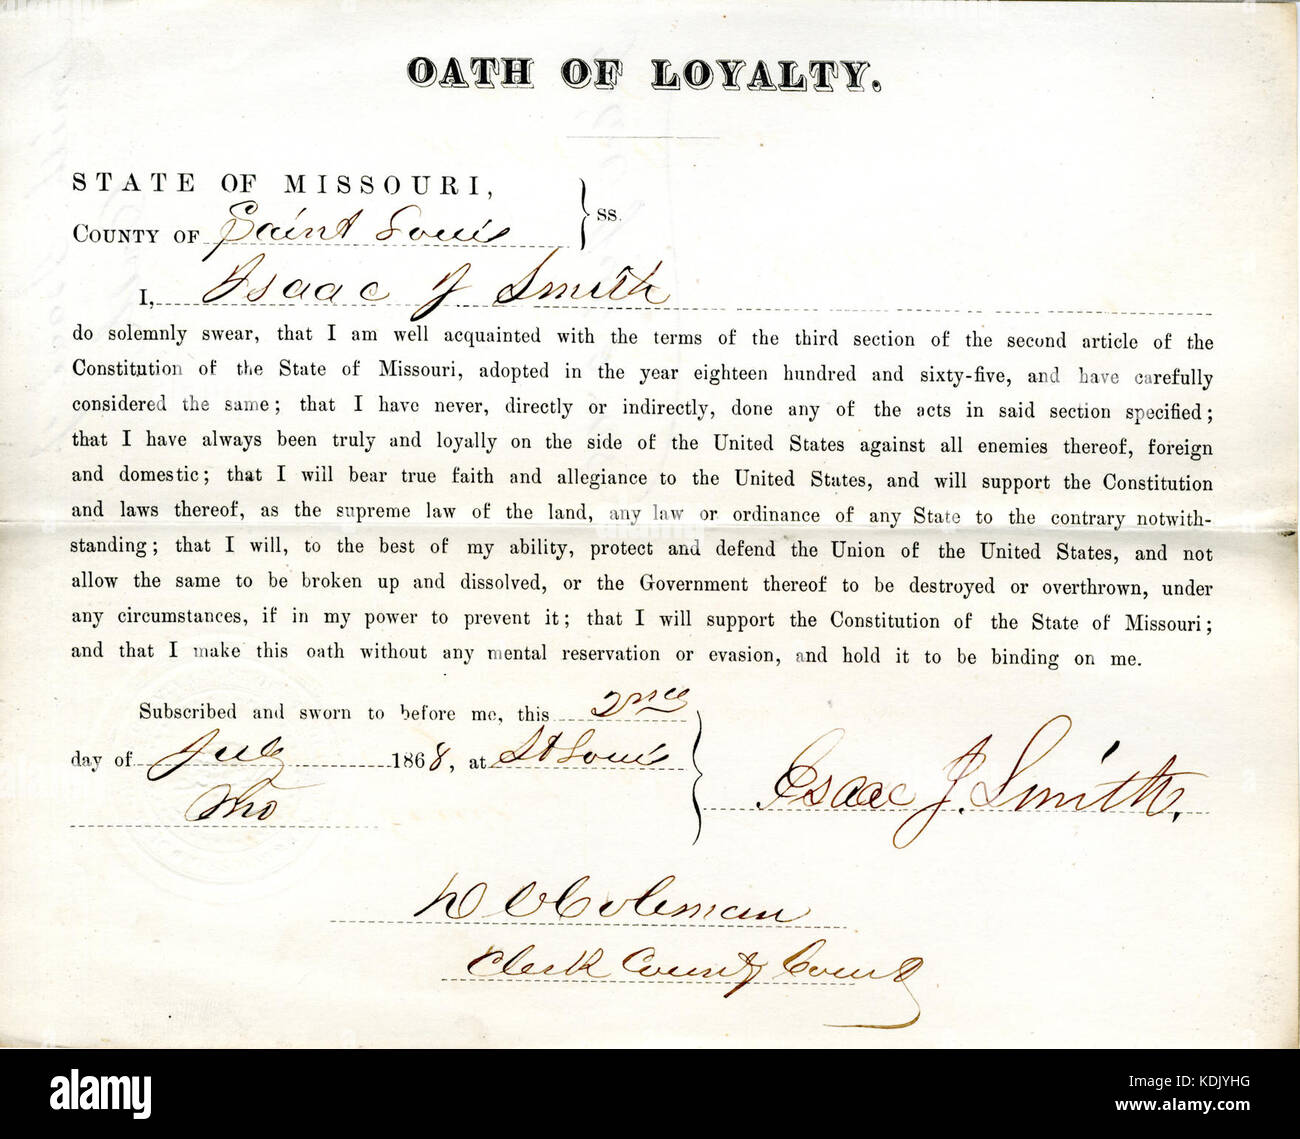 OATH OF LOYALTY.
STATE OF MISSOURI,
COUNTY OF Saint Louis } ss.
I, Isaac J Smith
do solemnly swear, that I am well acquainted with the terms of the third section of the second article of the
Constitution of the State of Missouri, adopted in the year eighteen hundred and sixty-five, and have carefully
considered the same; that I have never, directly or indirectly, done any of the acts in said section specified;
that I have always been truly and loyally on the side of the United States against all enemies thereof, foreign
and domestic; that I will bear true faith and allegiance to the United States, and will support the Constitution
and laws thereof, as the supreme law of the land, any law or ordinance of any State to the contrary notwith-
standing; that I will, to the best of my ability, protect and defend the Union of the United States, and not
allow the same to be broken up and dissolved, or the Government thereof to be destroyed or overthrown, under
any circumstances, if in my power to prevent it; that I will support the Constitution of the State of Missouri;
and that I make this oath without any mental reservation or evasion, and hold it to be binding on me.
Subscribed and sworn to before me, this 2nd
day of July 1868, at St Louis
Mo
Isaac J. Smith.
Coleman
Clerk County Court
alamy
Image ID: KDJYHG
www.alamy.com